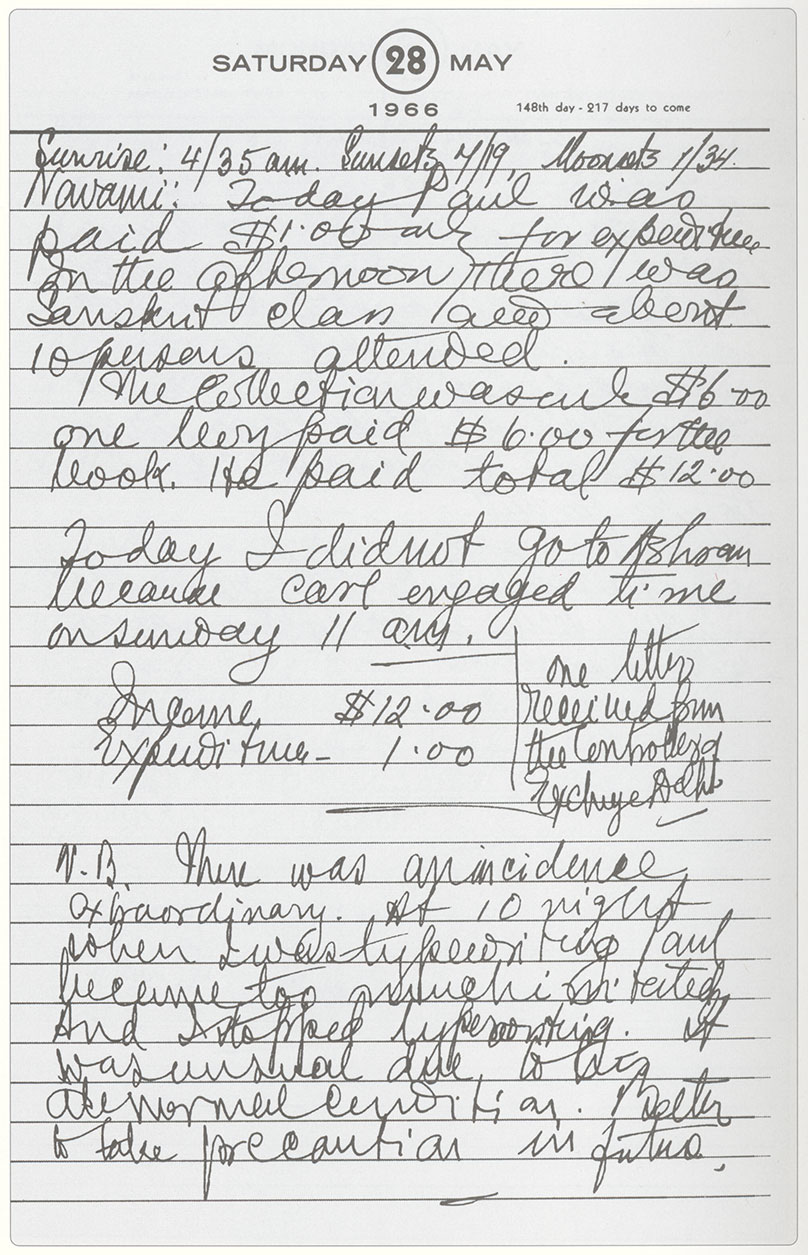 SATURDAY 28 MAY
1966 148th day - 217 days to come
Sunrise: 4/35 am. Sunsets 7/19, Moonsets 1/34.
Navami: Today Paul was
paid $1.00 only for expenditure
In the afternoon there was
Sanskrit class and about
10 persons attended.
The Collection was only $6.00
one boy paid $6.00 for the
book. He paid total $12.00
Today I did not go to Ashram
because Carl engaged time
on sunday 11 am.
Income $12.00
Expenditure - 1.00
one letter
received from
the Controller of
Exchange Delhi
N.B. There was an incidence
extraordinary. At 10 night
when I was typewriting Paul
became too much irritated
And I stopped typewriting. It
was unusual due to his
abnormal condition. Better
to take precaution in future.